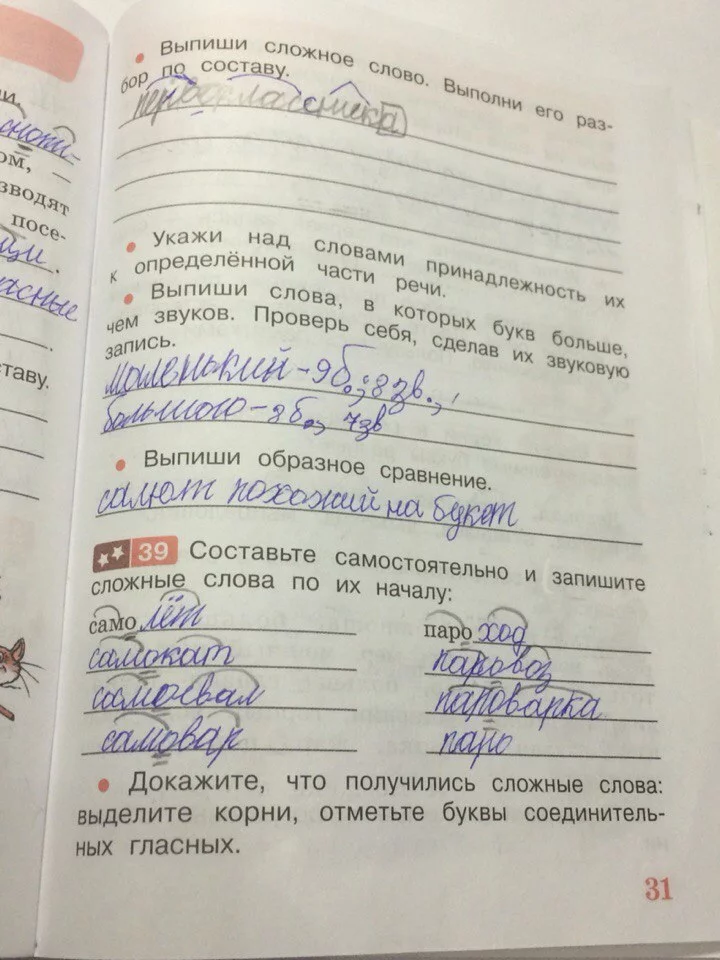 • Выпиши сложное слово. Выполни его раз-
бор по составу.
первоклассника
• Укажи над словами принадлежность их
к определённой части речи.
• Выпиши слова, в которых букв больше,
чем звуков. Проверь себя, сделав их звуковую
запись.
маленький – 9 б., 8 зв.,
большого – 8 б., 7 зв
• Выпиши образное сравнение.
салют похожий на букет
39 Составьте самостоятельно и запишите
сложные слова по их началу:
самолёт пароход
самокат паровоз
самосвал пароварка
самовар паро
• Докажите, что получились сложные слова:
выделите корни, отметьте буквы соединитель-
ных гласных.
31
ом,
зводят
посе-
ставу.